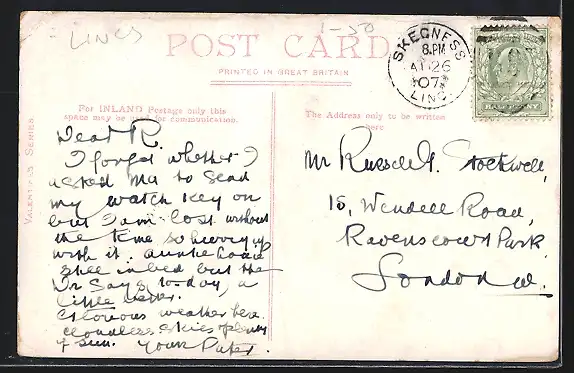 LINCS
1-50
POST CARD
PRINTED IN GREAT BRITAIN
SKEGNESS
8.PM
26
07
LINC.
HALFPENNY
VALENTINE'S SERIES
For INLAND Postage only this
space may be used for communication.
The Address only to be written
here
Dear R.
I forgot whether I
asked Ma to send
my watch key on
but I am lost without
the time so hurry up
with it. Auntie
still in bed but the
Dr says to-day, a
little better.
Glorious weather here
cloudless skies plenty
of sun. Your Pater.
Mr Russell G. Stockwell,
18, Wendell Road,
Ravenscourt Park
London W.